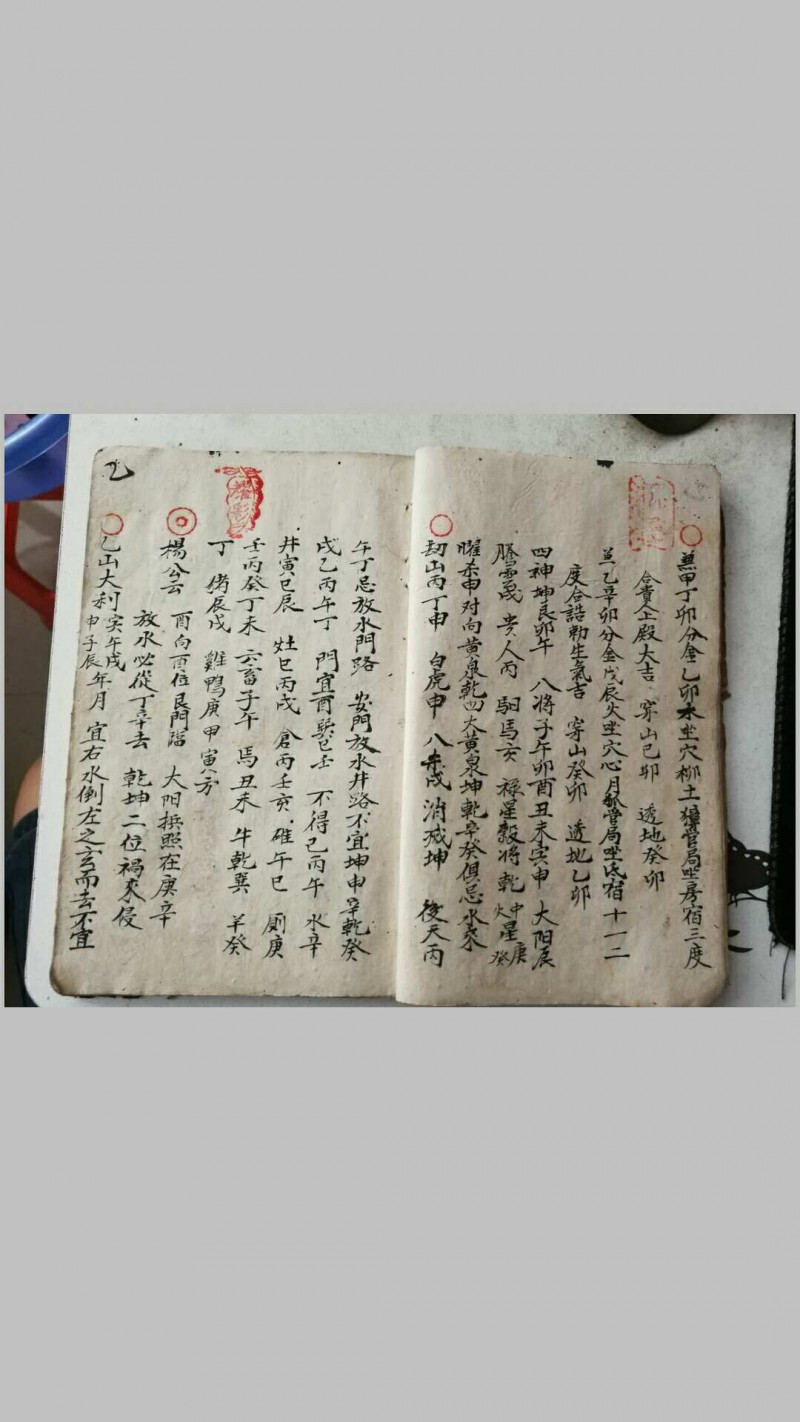 兼甲丁卯分金乙卯水坐穴柳土獐管局坐房宿三度
合貴金殿大吉 穿山己卯 透地癸卯
兼乙辛卯分金戊辰火坐穴心月狐管局坐氐宿十一二
度合誥勅生氣吉 穿山癸卯 透地乙卯
四神坤艮卯午 八將子午卯酉丑未寅申 大阳辰
騰雲晟 貴人丙 驲馬亥 祿星榖將乾 中大星庚癸
曜杀申对向黃泉乾四大黃泉坤乾辛癸俱忌水來
劫山丙丁申 白虎申 八杀戌消滅坤 後天丙
午丁忌放水門路 安門放水井路不宜坤申辛乾癸
戌乙丙午丁 門宜酉巽巳壬 不得己丙午 水辛
井寅巳辰 灶巳丙戌 倉丙壬亥 碓午巳 厠庚
壬丙癸丁未 六畜子午 馬丑未 牛乾巽 羊癸
丁 猪辰戌 雞鴨庚甲寅方
楊公云 酉向酉位艮門臨 大阳拱照在庚辛
放水必從丁辛去 乾坤二位禍來侵
乙
乙山大利寅午戌申子辰年月 宜右水倒左之玄而去不宜